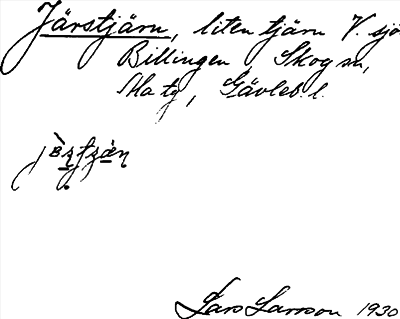 Järstjärn, liten tjärn V. sjö
Billingen, Skog sn,
Gävleb. l.
Lars Larsson 1930